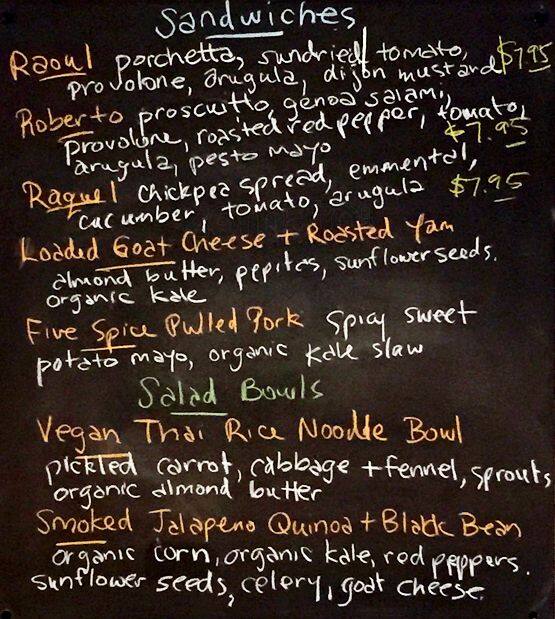 Sandwiches
Raoul porchetta, sundried tomato,
provolone, arugula, dijon mustard $7.95
Roberto prosciutto, genoa salami,
provolone, roasted red pepper, tomato,
arugula, pesto mayo $7.95
Raquel chickpea spread, emmental,
cucumber, tomato, arugula $7.95
Loaded Goat Cheese + Roasted Yam
almond butter, pepitas, sunflower seeds.
organic kale
Five Spice Pulled Pork spicy sweet
potato mayo, organic kale slaw
Salad Bowls
Vegan Thai Rice Noodle Bowl
pickled carrot, cabbage + fennel, sprouts
organic almond butter
Smoked Jalapeno Quinoa + Black Bean
organic corn, organic kale, red peppers.
sunflower seeds, celery, goat cheese.